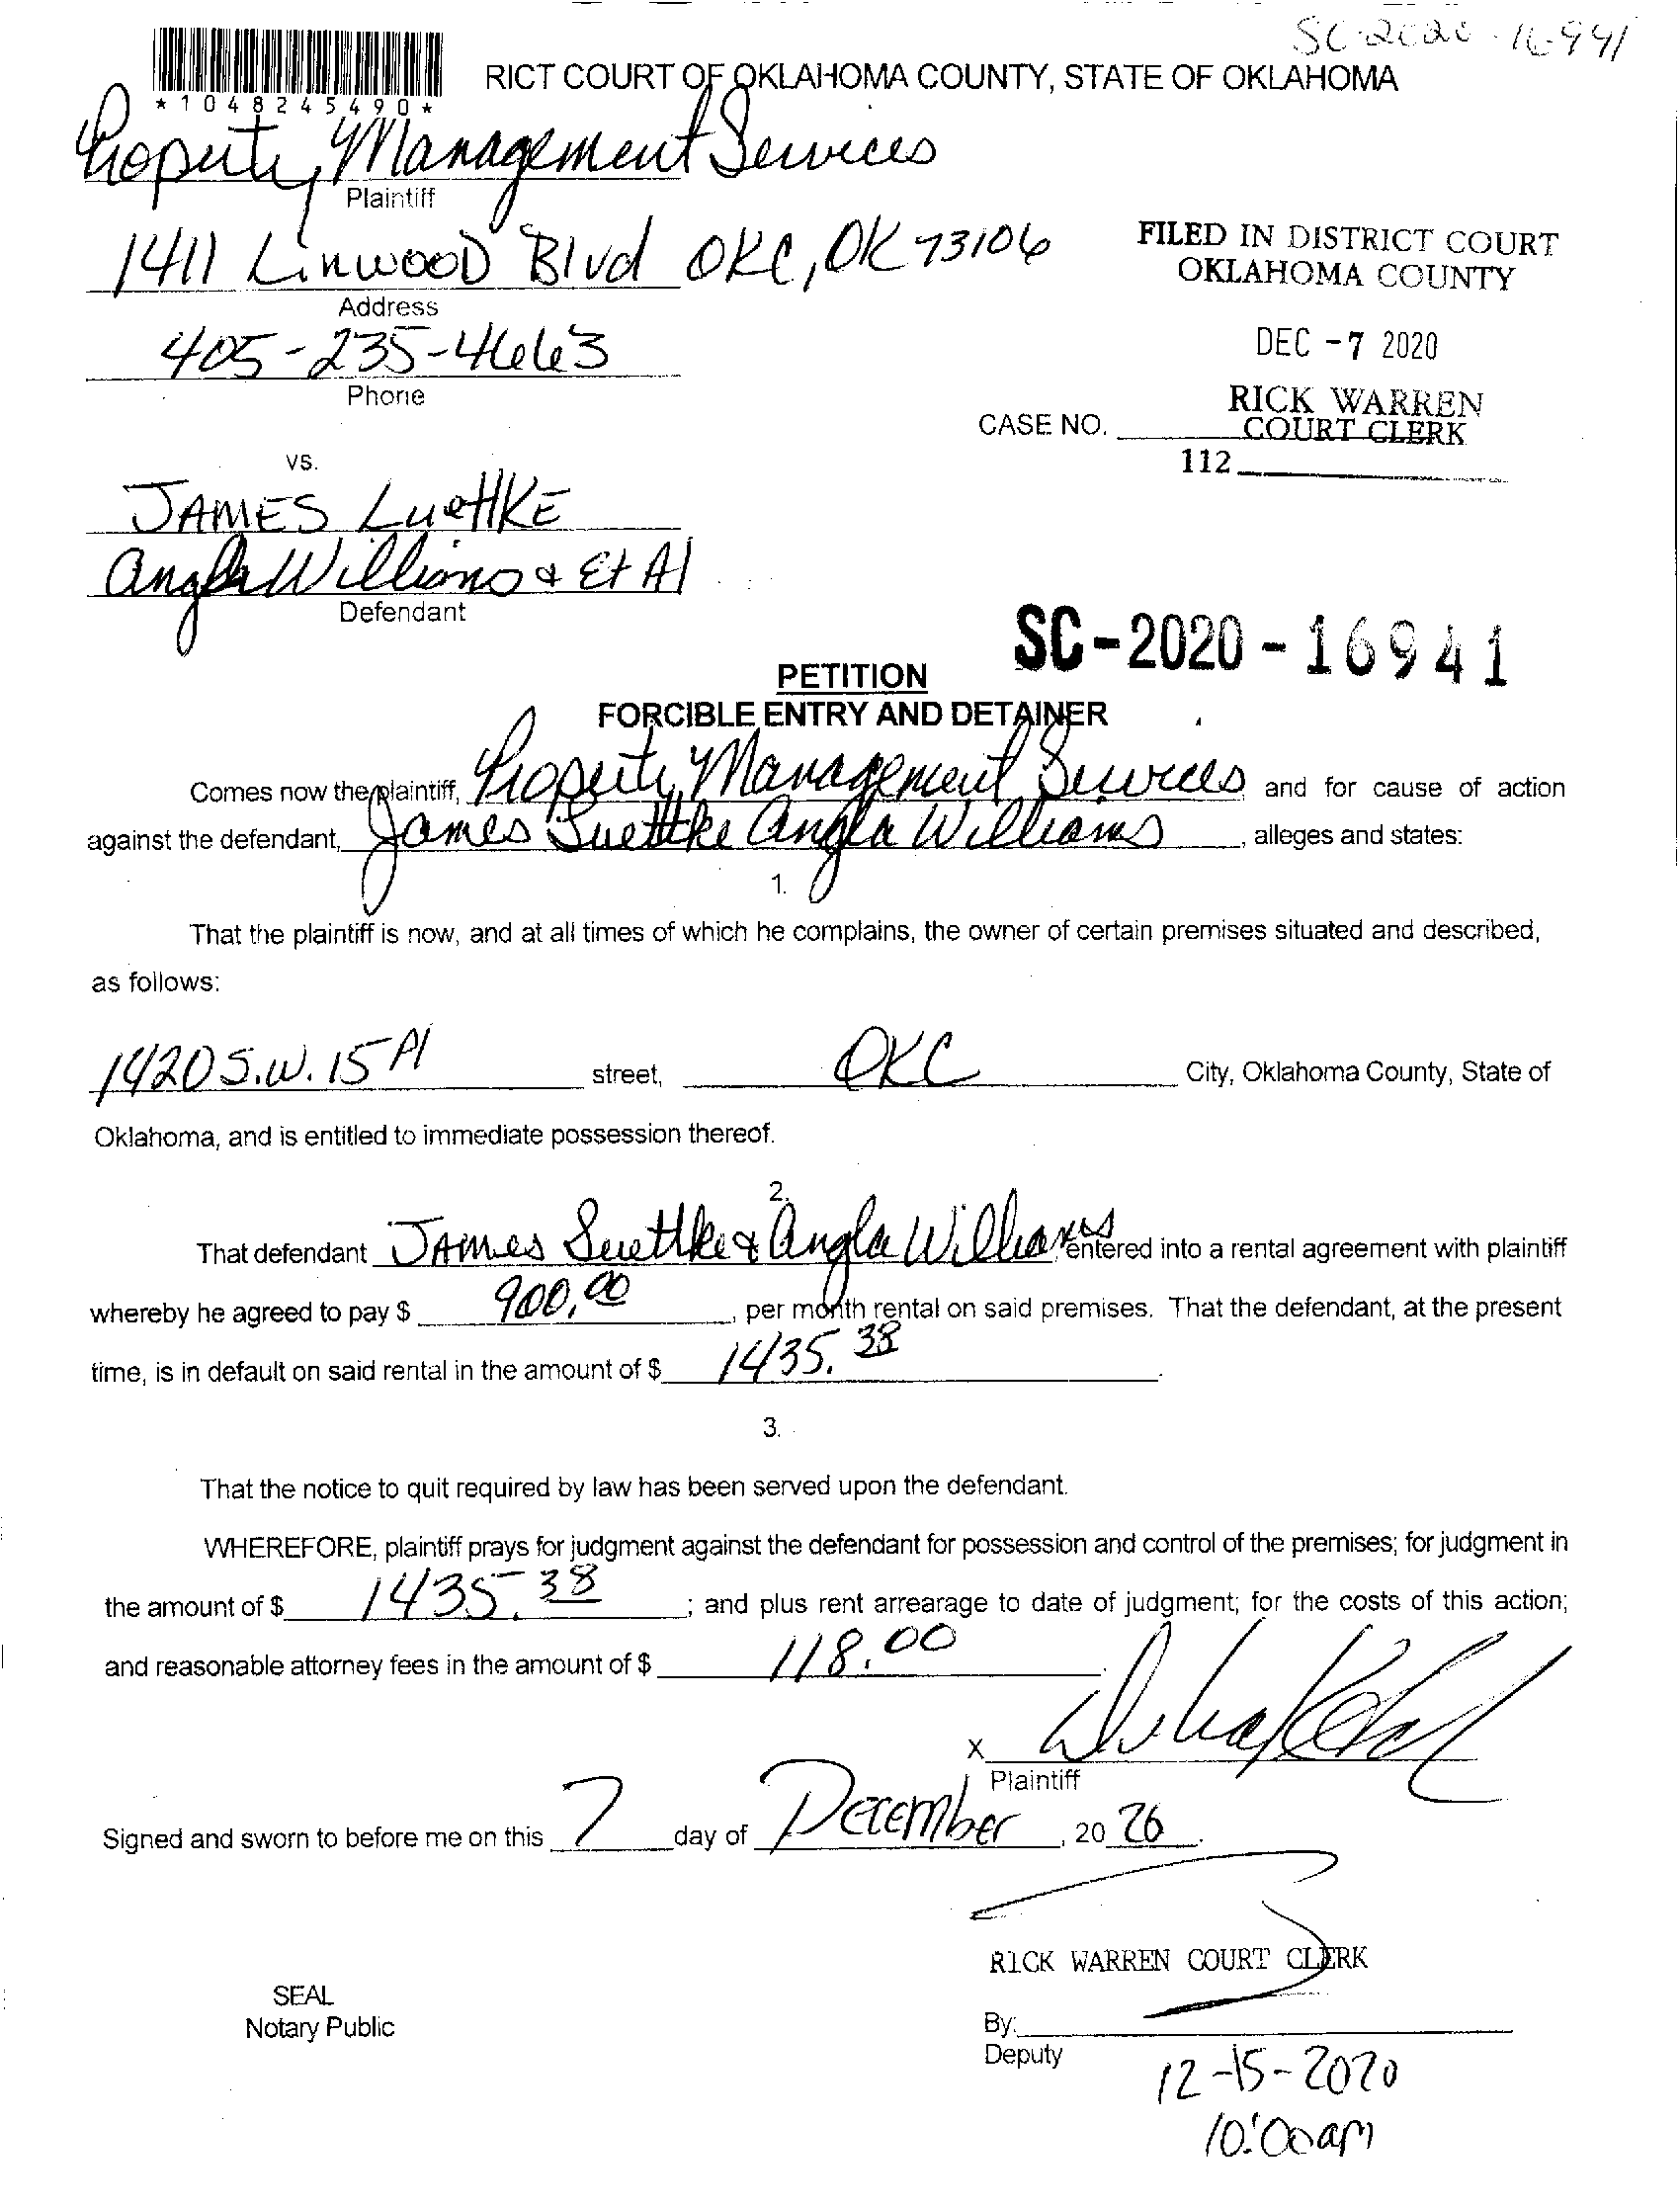 SC-2020-16941
*1048245490*
RICT COURT OF OKLAHOMA COUNTY, STATE OF OKLAHOMA
Property Management Services
Plaintiff
1411 Linwood Blvd OKC, OK 73106
Address
405-235-4663
Phone
FILED IN DISTRICT COURT
OKLAHOMA COUNTY
DEC -7 2020
RICK WARREN
COURT CLERK
CASE NO.
112
vs.
JAMES LuettKE
Angla Williams & Et Al
Defendant
SC-2020-16941
PETITION
FORCIBLE ENTRY AND DETAINER
Comes now the plaintiff, Property Management Services and for cause of action
against the defendant, James Luettke Angla Williams, alleges and states:
1.
That the plaintiff is now, and at all times of which he complains, the owner of certain premises situated and described,
as follows:
1420 S.W. 15 Pl street, OKC City, Oklahoma County, State of
Oklahoma, and is entitled to immediate possession thereof.
2.
That defendant James Luettke & Angla Williams entered into a rental agreement with plaintiff
whereby he agreed to pay $ 900.00, per month rental on said premises. That the defendant, at the present
time, is in default on said rental in the amount of $ 1435.38.
3.
That the notice to quit required by law has been served upon the defendant.
WHEREFORE, plaintiff prays for judgment against the defendant for possession and control of the premises; for judgment in
the amount of $ 1435.38; and plus rent arrearage to date of judgment; for the costs of this action;
and reasonable attorney fees in the amount of $ 118.00
X
Plaintiff
Signed and sworn to before me on this 7 day of December, 2020.
RICK WARREN COURT CLERK
SEAL
Notary Public
By:
Deputy
12-15-2020
10:00am